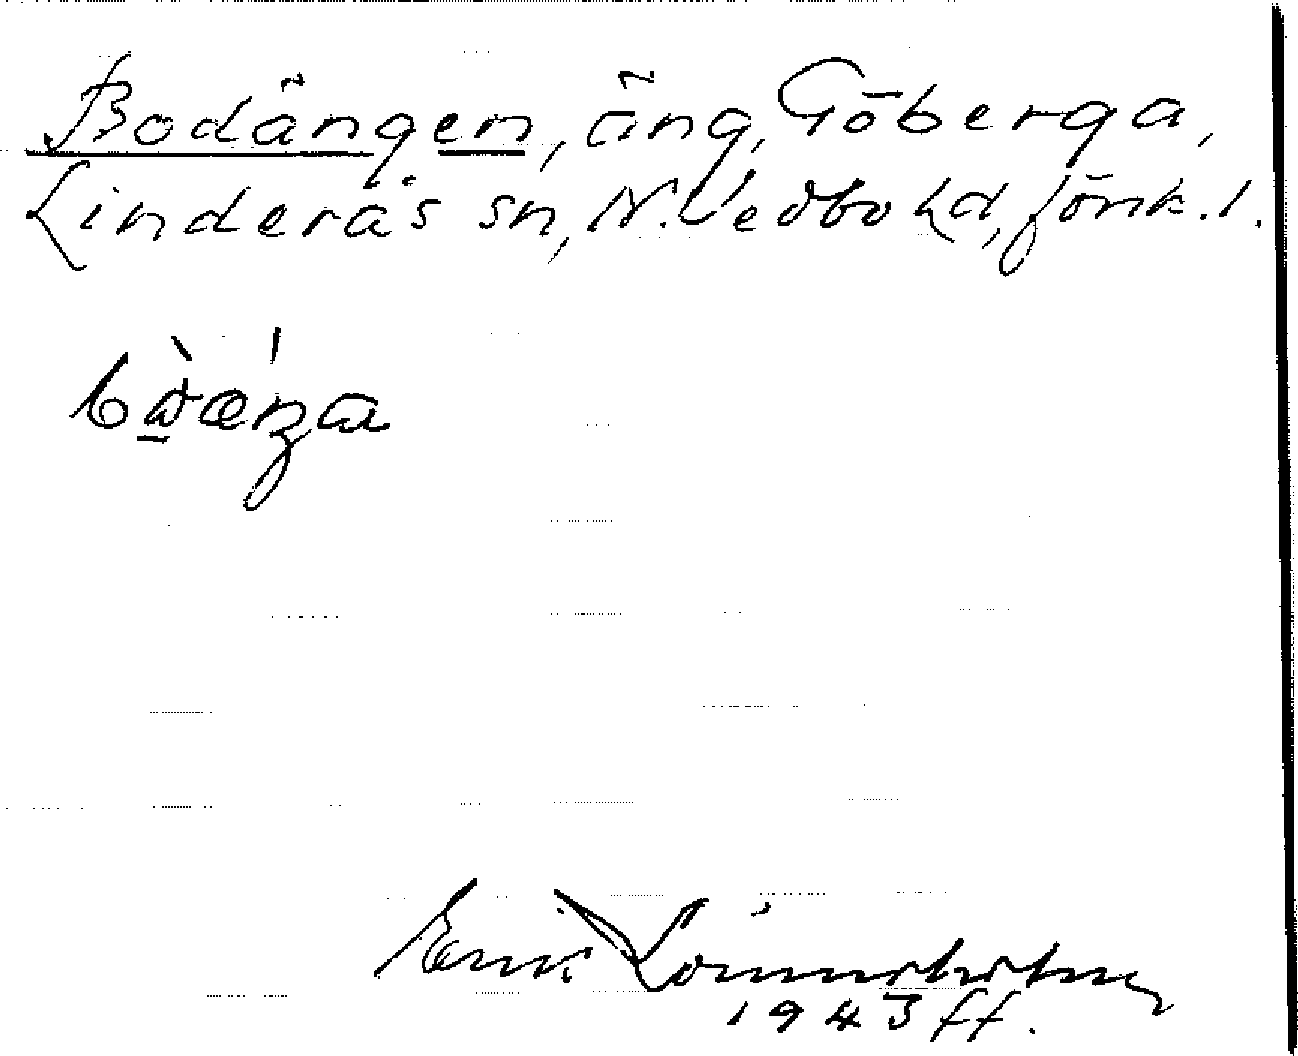 Bodängen, äng, Göberga,
Linderås sn, N. Vedbo hd, Jönk. l.
Erik Lönnerholm
1943 ff.